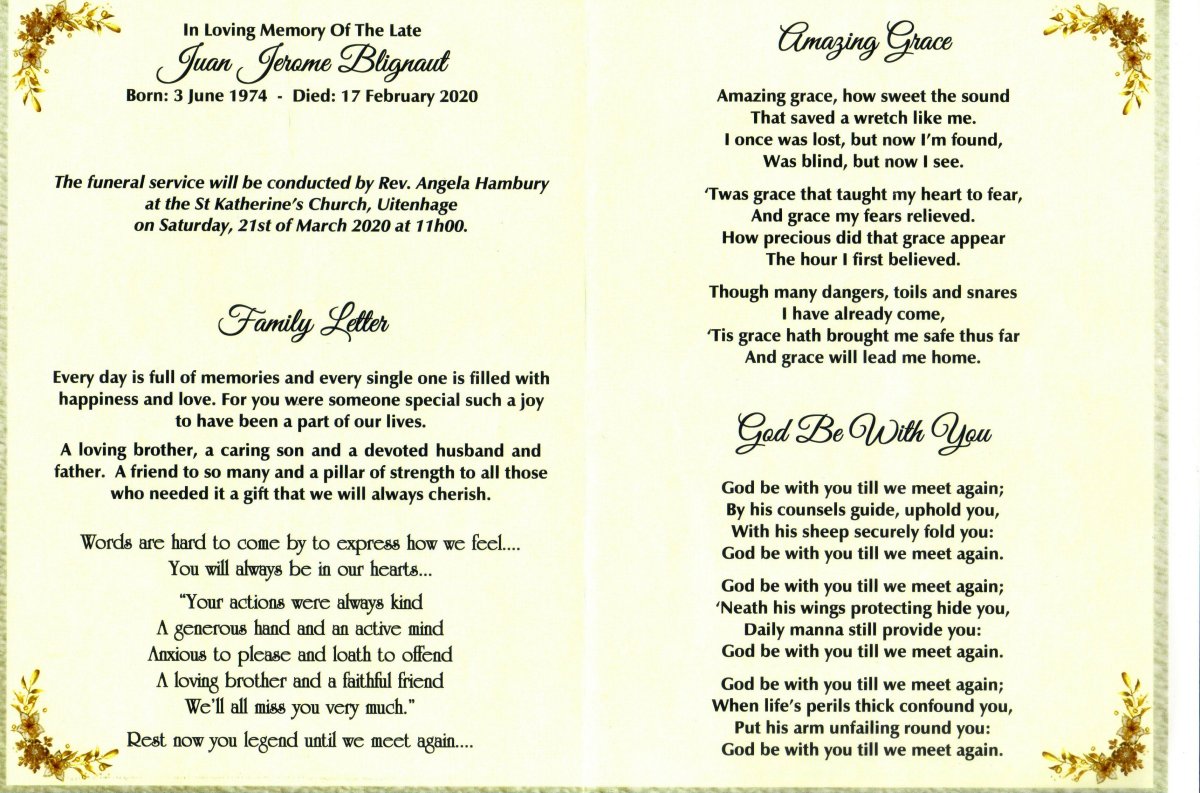 In Loving Memory Of The Late
Juan Jerome Blignaut
Born: 3 June 1974 - Died: 17 February 2020
The funeral service will be conducted by Rev. Angela Hambury
at the St Katherine's Church, Uitenhage
on Saturday, 21st of March 2020 at 11h00.
Family Letter
Every day is full of memories and every single one is filled with
happiness and love. For you were someone special such a joy
to have been a part of our lives.
A loving brother, a caring son and a devoted husband and
father. A friend to so many and a pillar of strength to all those
who needed it a gift that we will always cherish.
Words are hard to come by to express how we feel....
You will always be in our hearts...
"Your actions were always kind
A generous hand and an active mind
Anxious to please and loath to offend
A loving brother and a faithful friend
We'll all miss you very much."
Rest now you legend until we meet again....
Amazing Grace
Amazing grace, how sweet the sound
That saved a wretch like me.
I once was lost, but now I'm found,
Was blind, but now I see.
'Twas grace that taught my heart to fear,
And grace my fears relieved.
How precious did that grace appear
The hour I first believed.
Though many dangers, toils and snares
I have already come,
'Tis grace hath brought me safe thus far
And grace will lead me home.
God Be With You
God be with you till we meet again;
By his counsels guide, uphold you,
With his sheep securely fold you:
God be with you till we meet again.
God be with you till we meet again;
'Neath his wings protecting hide you,
Daily manna still provide you:
God be with you till we meet again.
God be with you till we meet again;
When life's perils thick confound you,
Put his arm unfailing round you:
God be with you till we meet again.